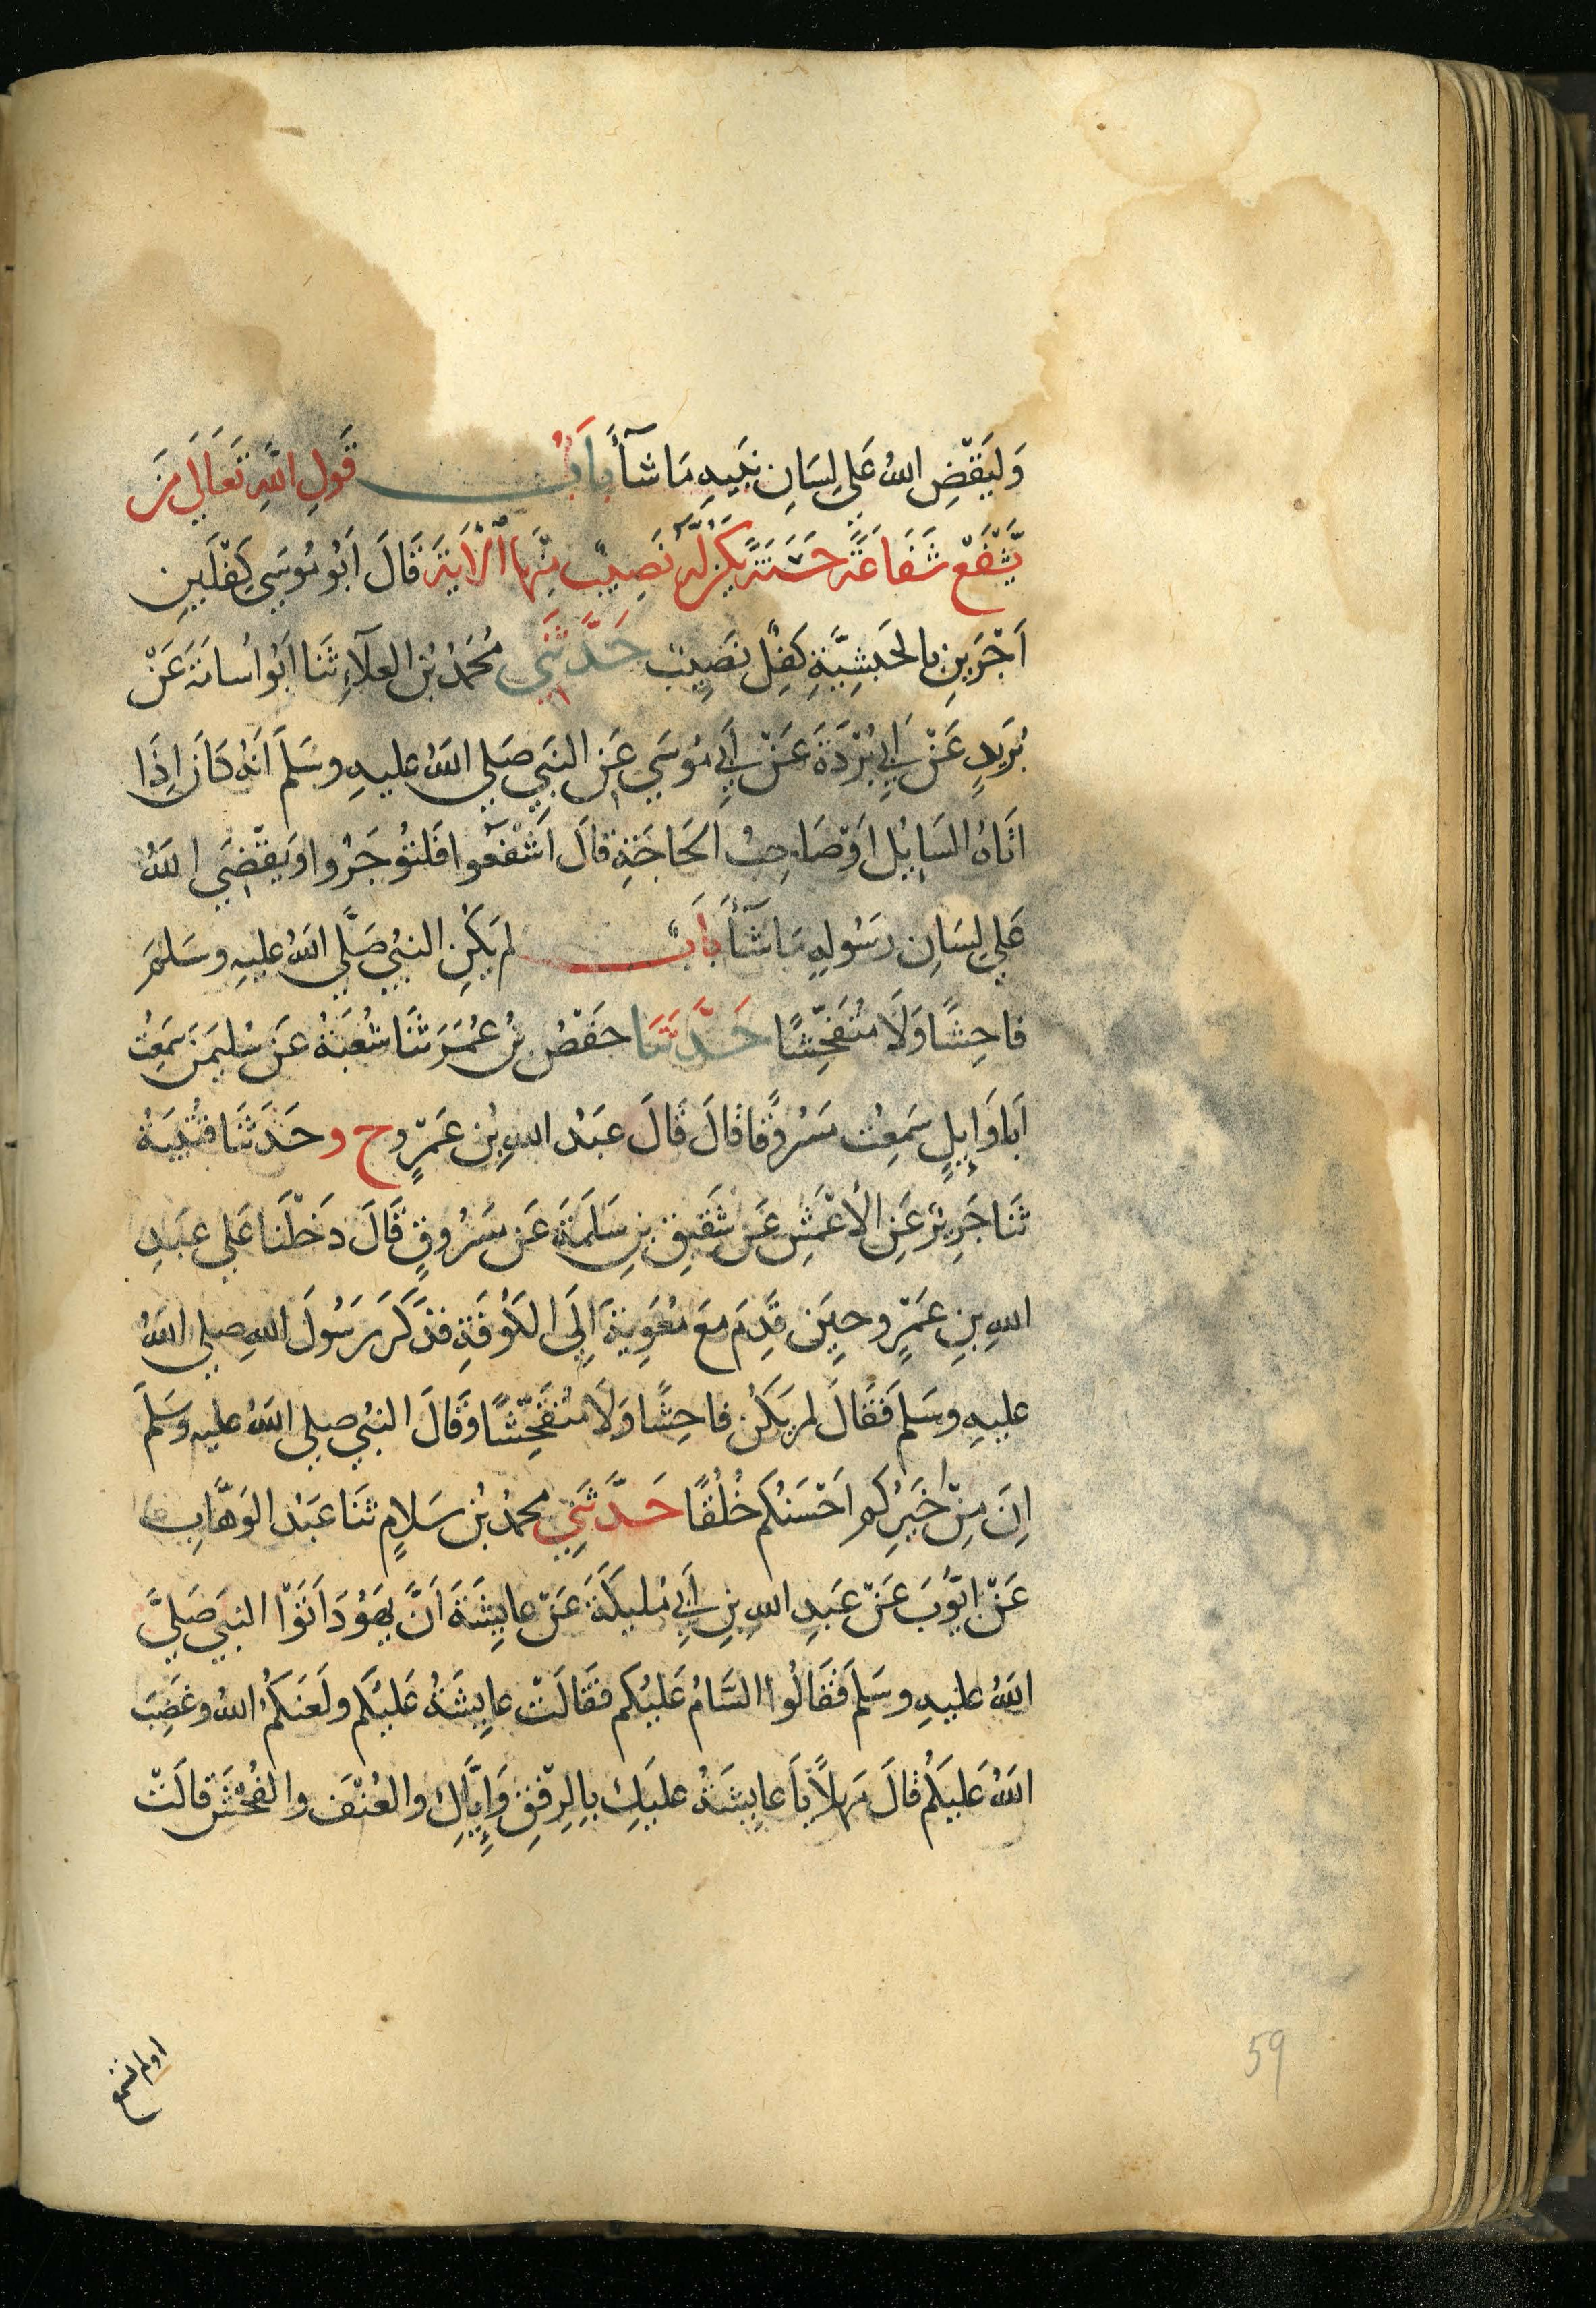 وَلِيَقْضِ اللهُ عَلي لِسَانِ نَبِيِهِ مَا شَآءَ بَابُ قَولِ اللهِ تَعَالَي مَن
يَّشْفَعْ شَفَاعَةً حَسَنَةً يَكُن لَّهُ نَصِيبٌ مِّنْهَا الْآيَةَ قَالَ اَبُو مُوسَي كِفْلَينِ
اَجْرَينِ بالحَبَشِيَّةِ كِفْلٌ نَصِيبٌ حَدَّثَنِي مُحَمَّدُ بْنُ العَلَآءِ ثَنَا اَبُو اُسَامَةَ عَنْ
بُرَيدٍ عَنْ اَبِي بُرْدَةَ عَنْ اَبِي مُوسَي عَنِ النَبِي صَلي اللهُ عليهِ وسَلمَ اَنهُ كَانَ اِذَا
اتَاهُ السَايِلُ اَوْ صَاحِبُ الحَاجَةِ قالَ اَشْفَعُوا فَلتُوجَرُوا وَيَقْضِي اللهُ
عَلي لِسَانِ رَسُولِهِ مَا شَآءَ بَابٌ لم يَكُنِ النبي صَلَّي اللهُ عليهِ وسَلمَ
فاحِشًا وَلَا مُتَفَحِّشًا حَدَّثَنَا حَفْصُ بْنُ عُمَرَ ثَنَا شُعْبَةُ عَن سُليمَن سَمِعْتُ
اَبَا وَايِلٍ سَمِعْتُ مَسْرُوقًا قالَ قَالَ عبَدُ اللهِ بْن عَمْرٍو ح و حَدَثَنَا قُتَيبَةُ
ثَنَا جَرِيرٌ عَنِ الأعْمَشِ عَن شَقِيقِ بنِ سَلَمَةَ عَن مَسْرُوقٍ قَالَ دَخَلْنَا عَلي عبَدِ
اللهِ بنِ عَمْرٍو حِينَ قَدِمَ مَعَ مُعَوِيةَ اِلَي الكُوفَةِ فذَكَرَ رَسُولَ اللهِ صلي اللهُ
عليهِ وسَلمَ فَقَالَ لم يَكُن فاحِشًا وَلَا مُتَفَحِّشًا وَقَالَ النبي صلي اللهُ عليه وسَلمَ
اِنَ مِنْ اَخْيَرِكُم اَحْسَنُكُم خُلُقًا حَدَّثَنِي محمدُ بْنُ سَلامٍ ثَنَا عَبْدُ الوَهَّابِ
عَنْ ايُّوبَ عَنْ عَبدِ اللهِ بنِ اَبِي مُليكَةَ عَنْ عايِشَةَ اَنَّ يَهُودَ اَتَوْا النبَي صَليَّ
اللهُ عليهِ وسَلمَ فَقَالُوا السَّامُ عَليْكُم فَقَالَتْ عايِشَةُ عَلَيْكُم ولَعَنَكُمُ اللهُ وغَضِبَ
اللهُ عَليكُم قالَ مَهلًا يَا عايِشَةُ عليَكِ بِالرِفْقِ وَاِيَّاكِ والعُنْفَ والفُحْشَ قالَتْ
اولم تسمع
59